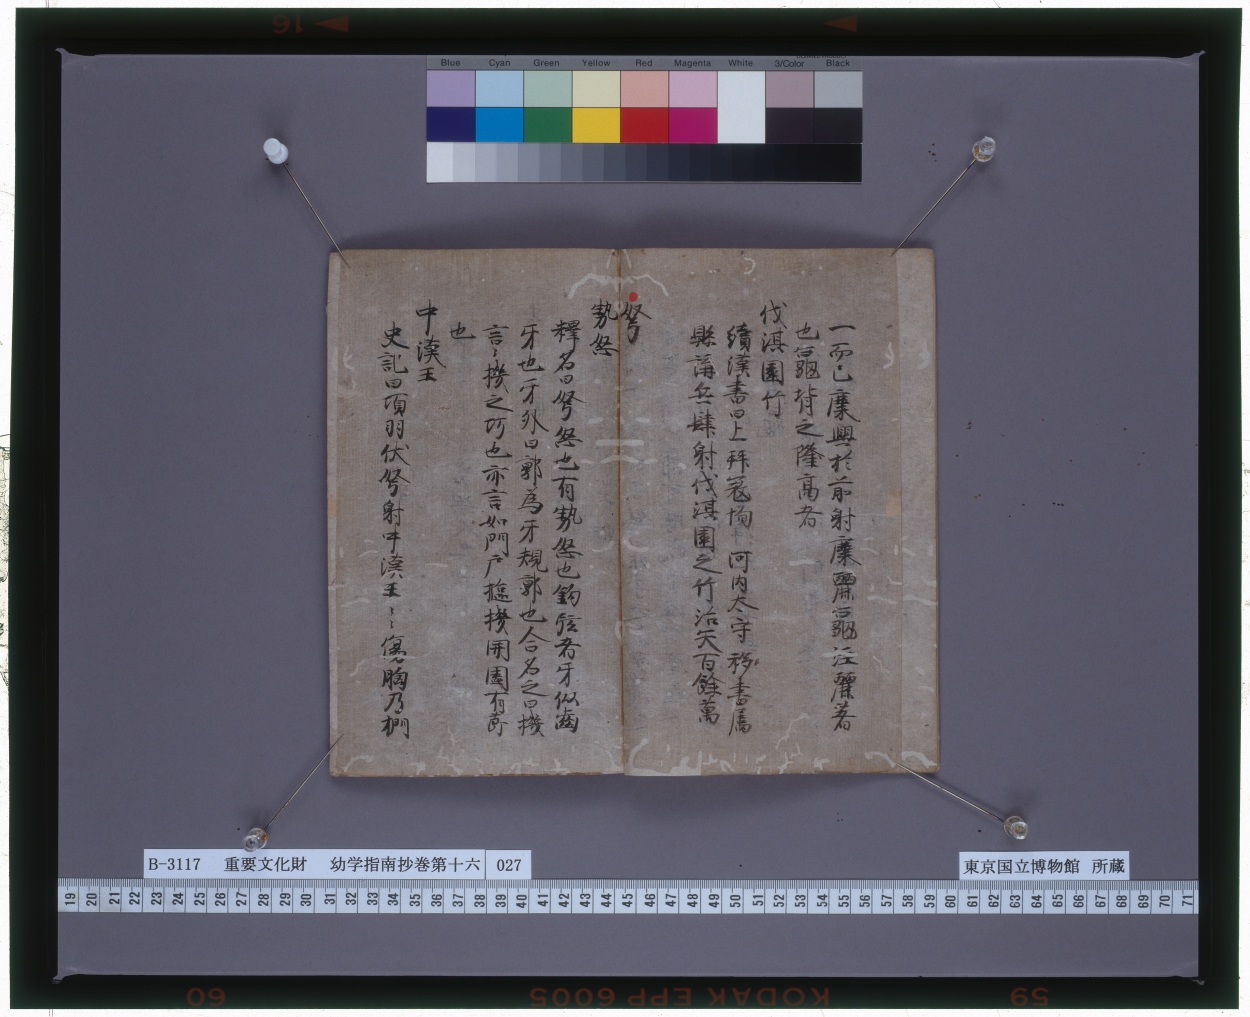 Blue Cyan Green Yellow Red Magenta White 3/Color Black
一而已麋興於前射麋麗龜注麗著
也龜背之隆高者
伐淇園竹
續漢書曰上拜寇恂河内太守移書属
縣講兵肄射伐淇園之竹治矢百餘萬
弩
勢怒
釋名曰弩怒也有勢怒也鈎弦者牙似齒
牙也牙外曰郭為牙規郭也合名之曰機
言〻機之巧也亦言如門戸樞機開園有莭
也
中漢王
史記曰項羽伏弩射中漢王〻〻傷胸乃捫
B-3117 重要文化財 幼学指南抄巻第十六 027
東京国立博物館 所蔵
19 20 21 22 23 24 25 26 27 28 29 30 31 32 33 34 35 36 37 38 39 40 41 42 43 44 45 46 47 48 49 50 51 52 53 54 55 56 57 58 59 60 61 62 63 64 65 66 67 68 69 70 71
16
60 KODAK EPP 6005 59